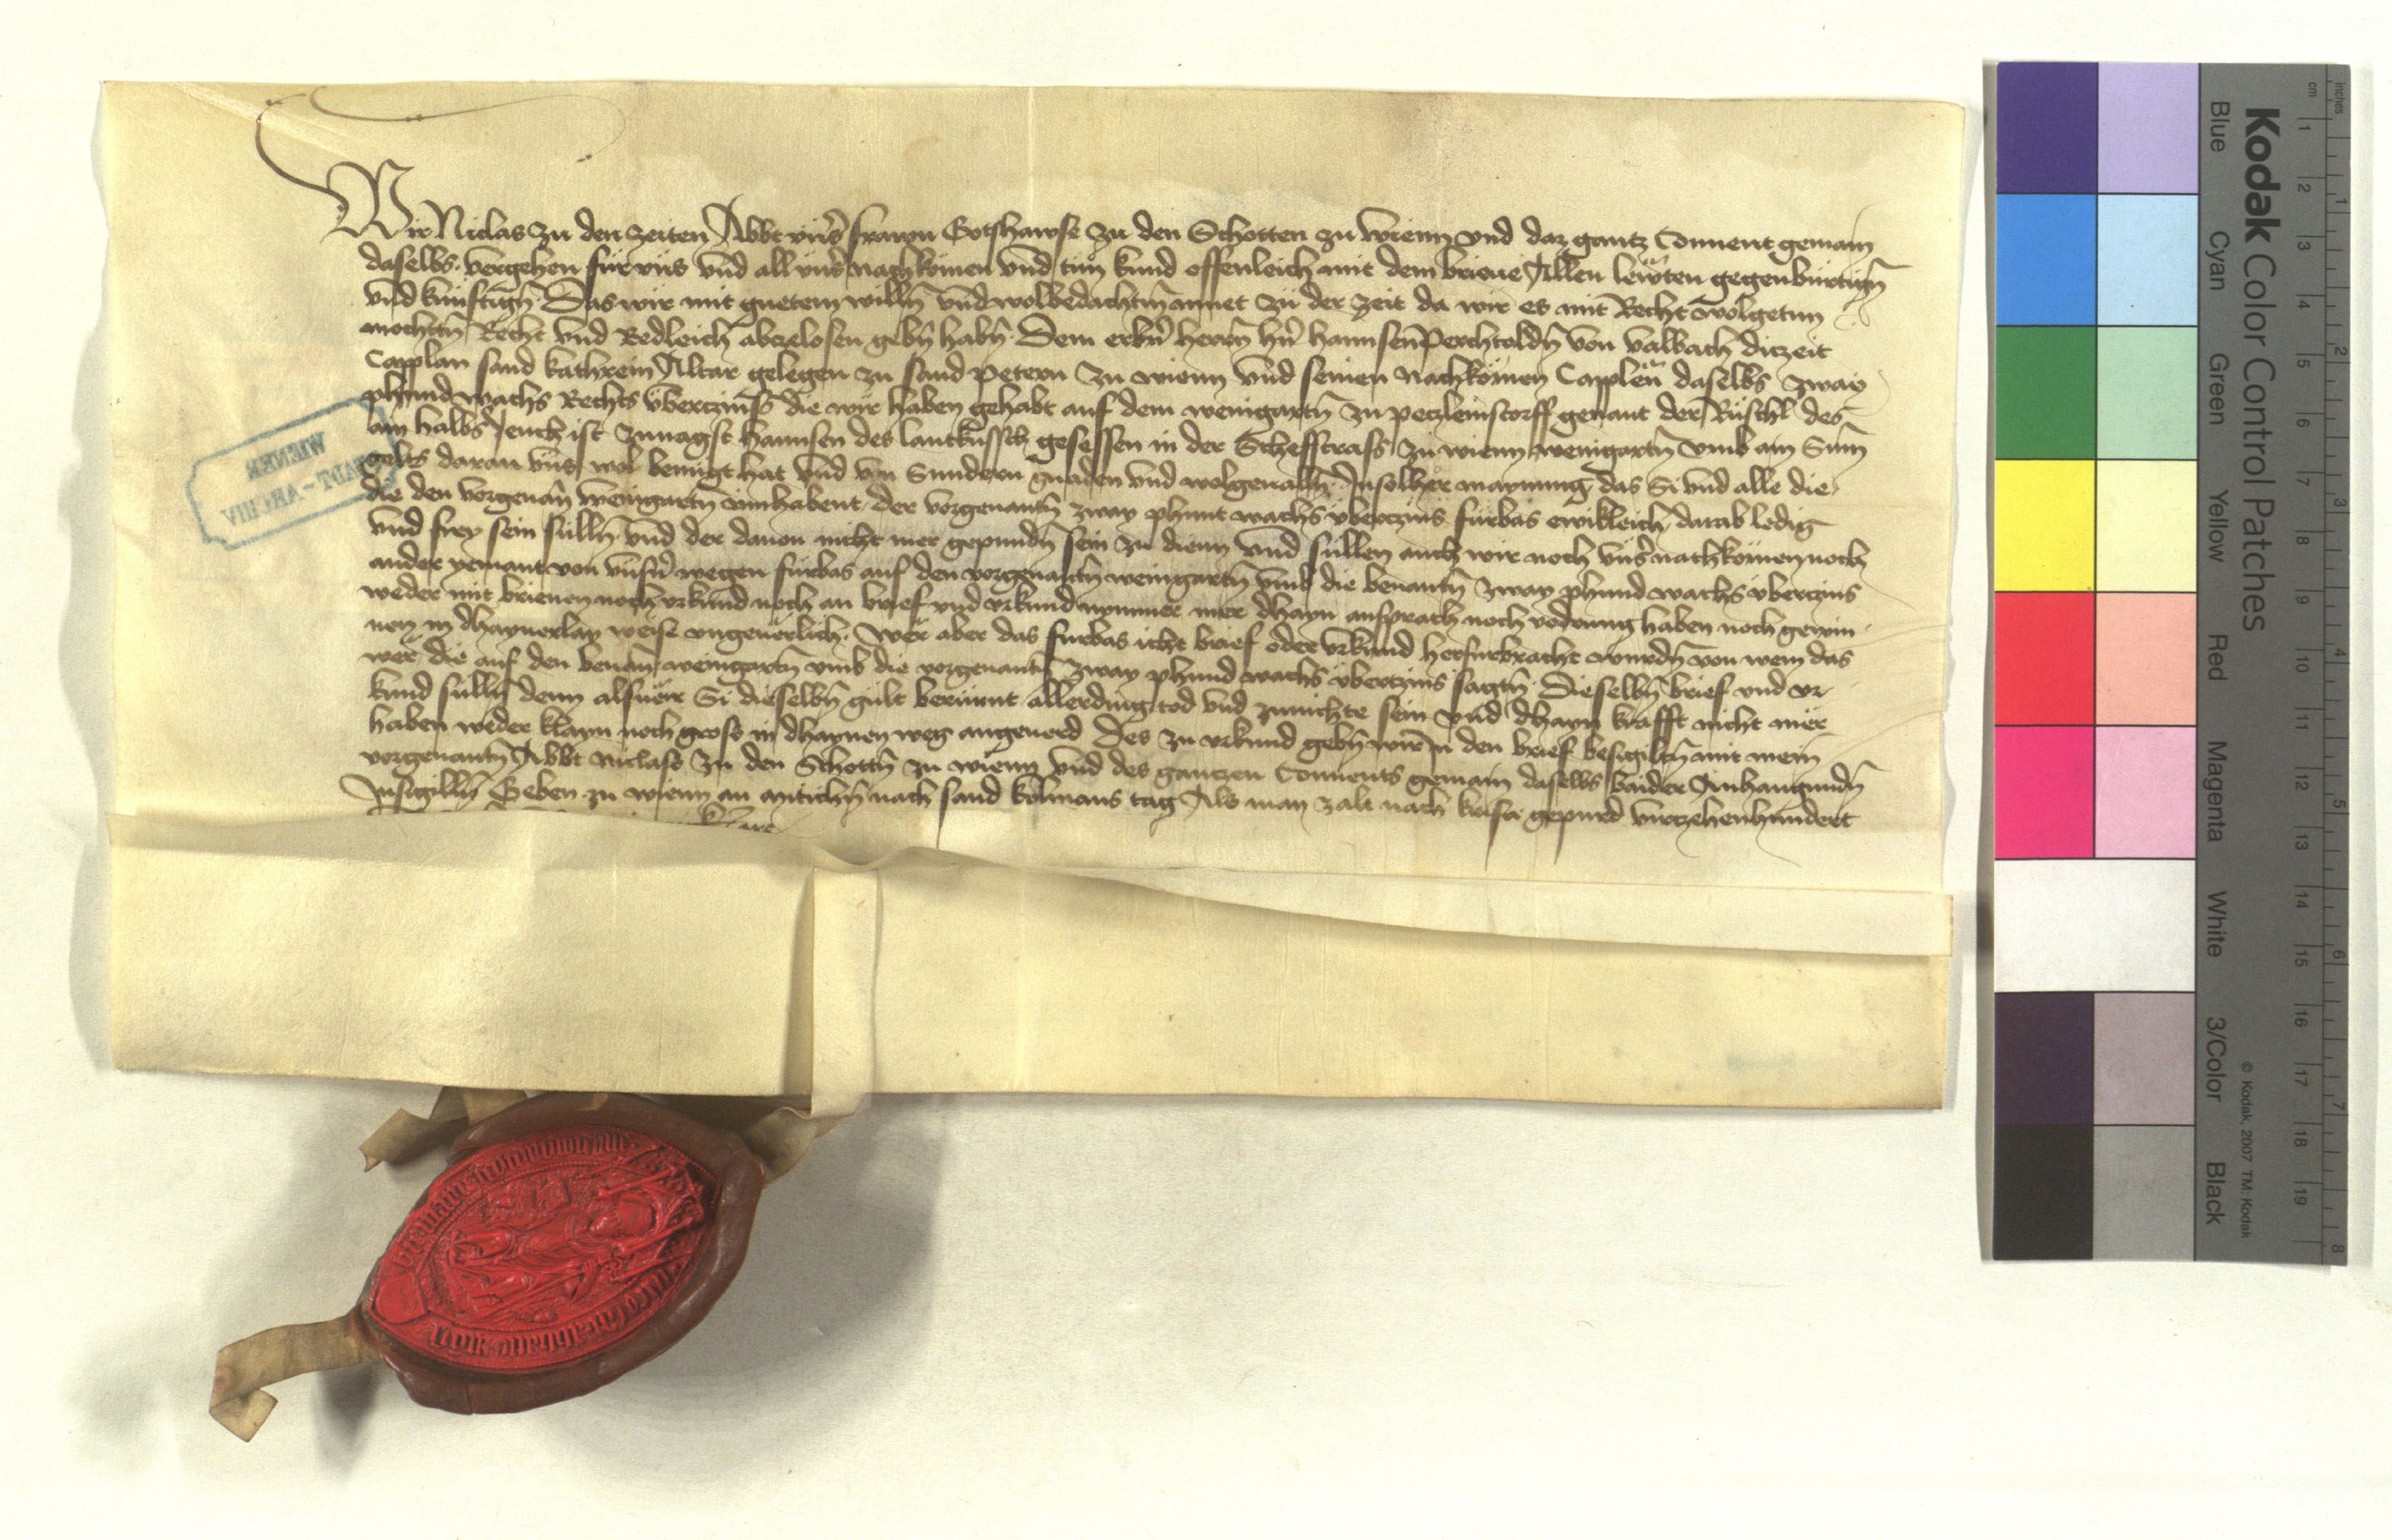 Wir Niclas zu den zeiten Abbt vnsr frawn Gotshawse zu den Schotten zu Wienn vnd daz gantz Conuent gemain
daselbs vergehen für vns vnd all vnsr nachkomen vnd tun kund offenleich mit dem brieue Allen lewten gegenburtign
vnd kunftign Das wir mit guetem willn vnd wolbedachtm muet zu der zeit da wir es mit Recht wolgetun
mochtn Recht vnd Redleich abczelosen gebn habn Dem erbrn herrn hrn hannsen Perchtoldn von Valbach diczeit
Capplan sand kathrein Altar gelegen zu sand Petern zu wienn vnd seinen nachkomen Capplen daselbs zway
phund wachs Rechts vberzinss die wir haben gehabt auf dem weingartn zu peczleinstorff genant der Ruschl des
ain halbs Jeuch ist zunagst hannsen des lantkussch gesessen in der Scheffstrass zu wienn weingartn vmb ain Sum
gelts daran vns wol benugt hat vnd von Sundern gnaden vnd wolgenalln In solher maynung das Si vnd alle die
die den vorgenan weingartn innhabent der vorgenantn zway phunt wachs vberzins furbas ewikleich darab ledig
vnd frey sein sulln vnd der dauon nicht mer gepundn sein zu dienn vnd sullen auch wir noch vnsr nachkomen noch
ander yemant von vnsrn wegen furbas auf den vorgenantn weingartn vmb die benantn zway phund wachs vberzins
weder mit brieuen noch vrkund noch an brief vnd vrkund nymmer mer dhayn ansprach noch vodrung haben noch gewin
nen in dhaynerlay weise vngeuerlich Wer aber das furbas icht brief oder vrkund herfurbracht wurdn von wem das
wer die auf den benan weingartn vmb die vorgenantn zway phund wachs vberzins sagtn Dieselbn brief vnd vr
kund sulln denn alsuerr Si dieselbn gult berurnt allerding tod vnd zenichte sein vnd dhayn krafft nicht mer
haben weder klayn noch gross in dhaynen weg angeuerd Des zu vrkund gebn wir In den brief besigiltn mit mein
vorgenantn Abbt Niclass zu den Schottn zu wienn vnd des ganczen Conuents gemain daselbs baider Anhangundn
Insigilln Geben zu wienn an mitichn nach sand kolmans tag Als man zalt nach kristi gepurd virczehenhundert
WIENER
STADT-ARCHIV
Kodak Color Control Patches
Blue Cyan Green Yellow Red Magenta White 3/Color Black
© Kodak, 2007 TM: Kodak
inches 1 2 3 4 5 6 7 8
cm 1 2 3 4 5 6 7 8 9 10 11 12 13 14 15 16 17 18 19